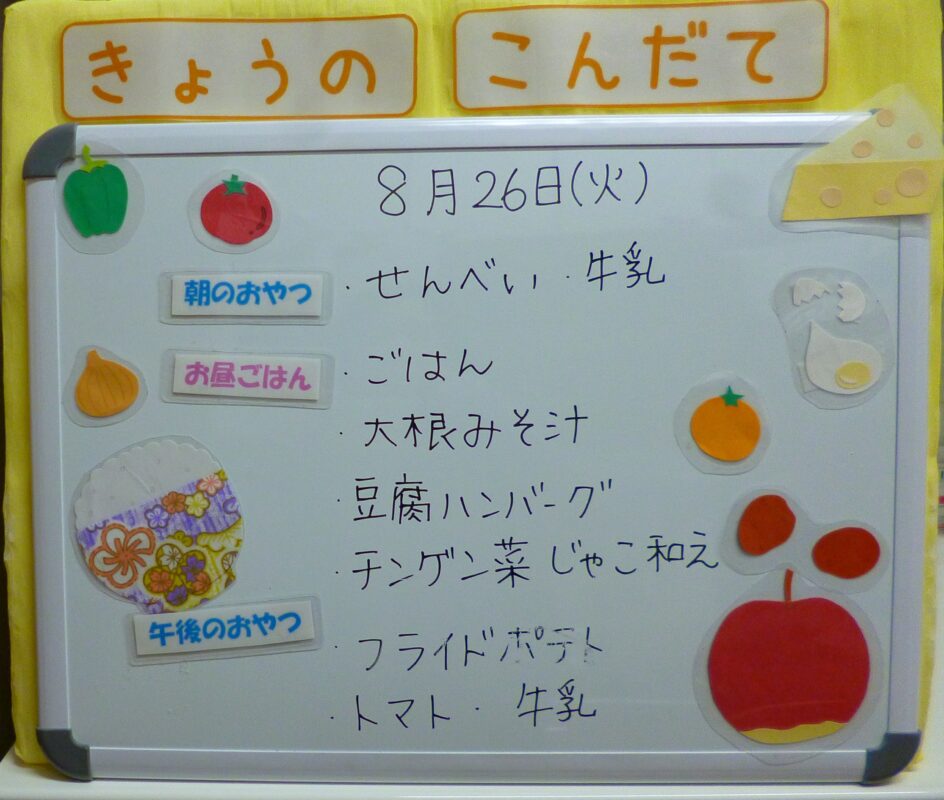 きょうの こんだて
8月26日(火)
朝のおやつ ・せんべい ・牛乳
お昼ごはん ・ごはん
・大根みそ汁
・豆腐ハンバーグ
・チンゲン菜じゃこ和え
午後のおやつ ・フライドポテト
・トマト・牛乳